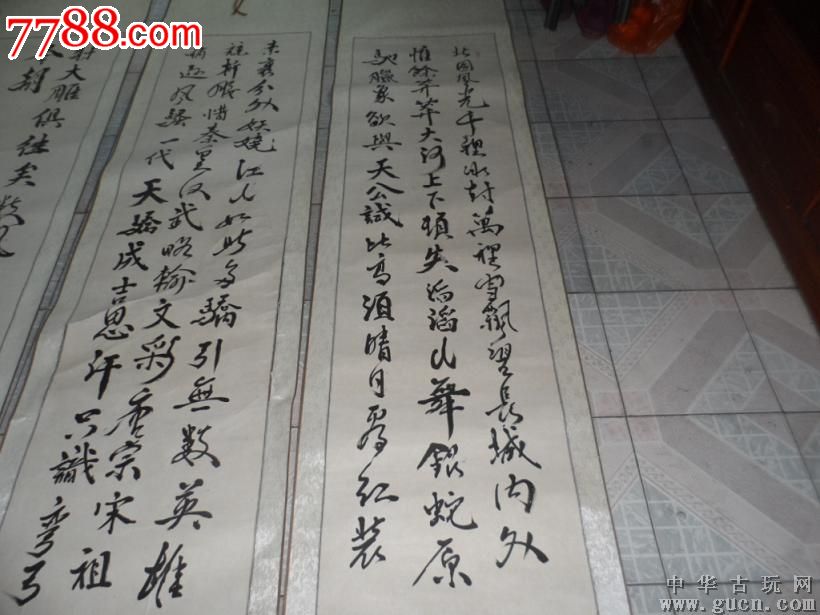 7788.com
北国风光千裡冰封萬裡雪飄望長城内外
惟餘莽莽大河上下頓失滔滔山舞銀蛇原
馳臘象欲與天公誠比高須晴日看红裝
素裹分外妖嬈江山如此多驕引無數英雄
折腰惜秦皇汉武略输文彩唐宗宋祖
稍遜风騷一代天驕成吉思汗只識彎弓
射大雕俱往矣数风
朝
中华古玩网
www.gucn.com